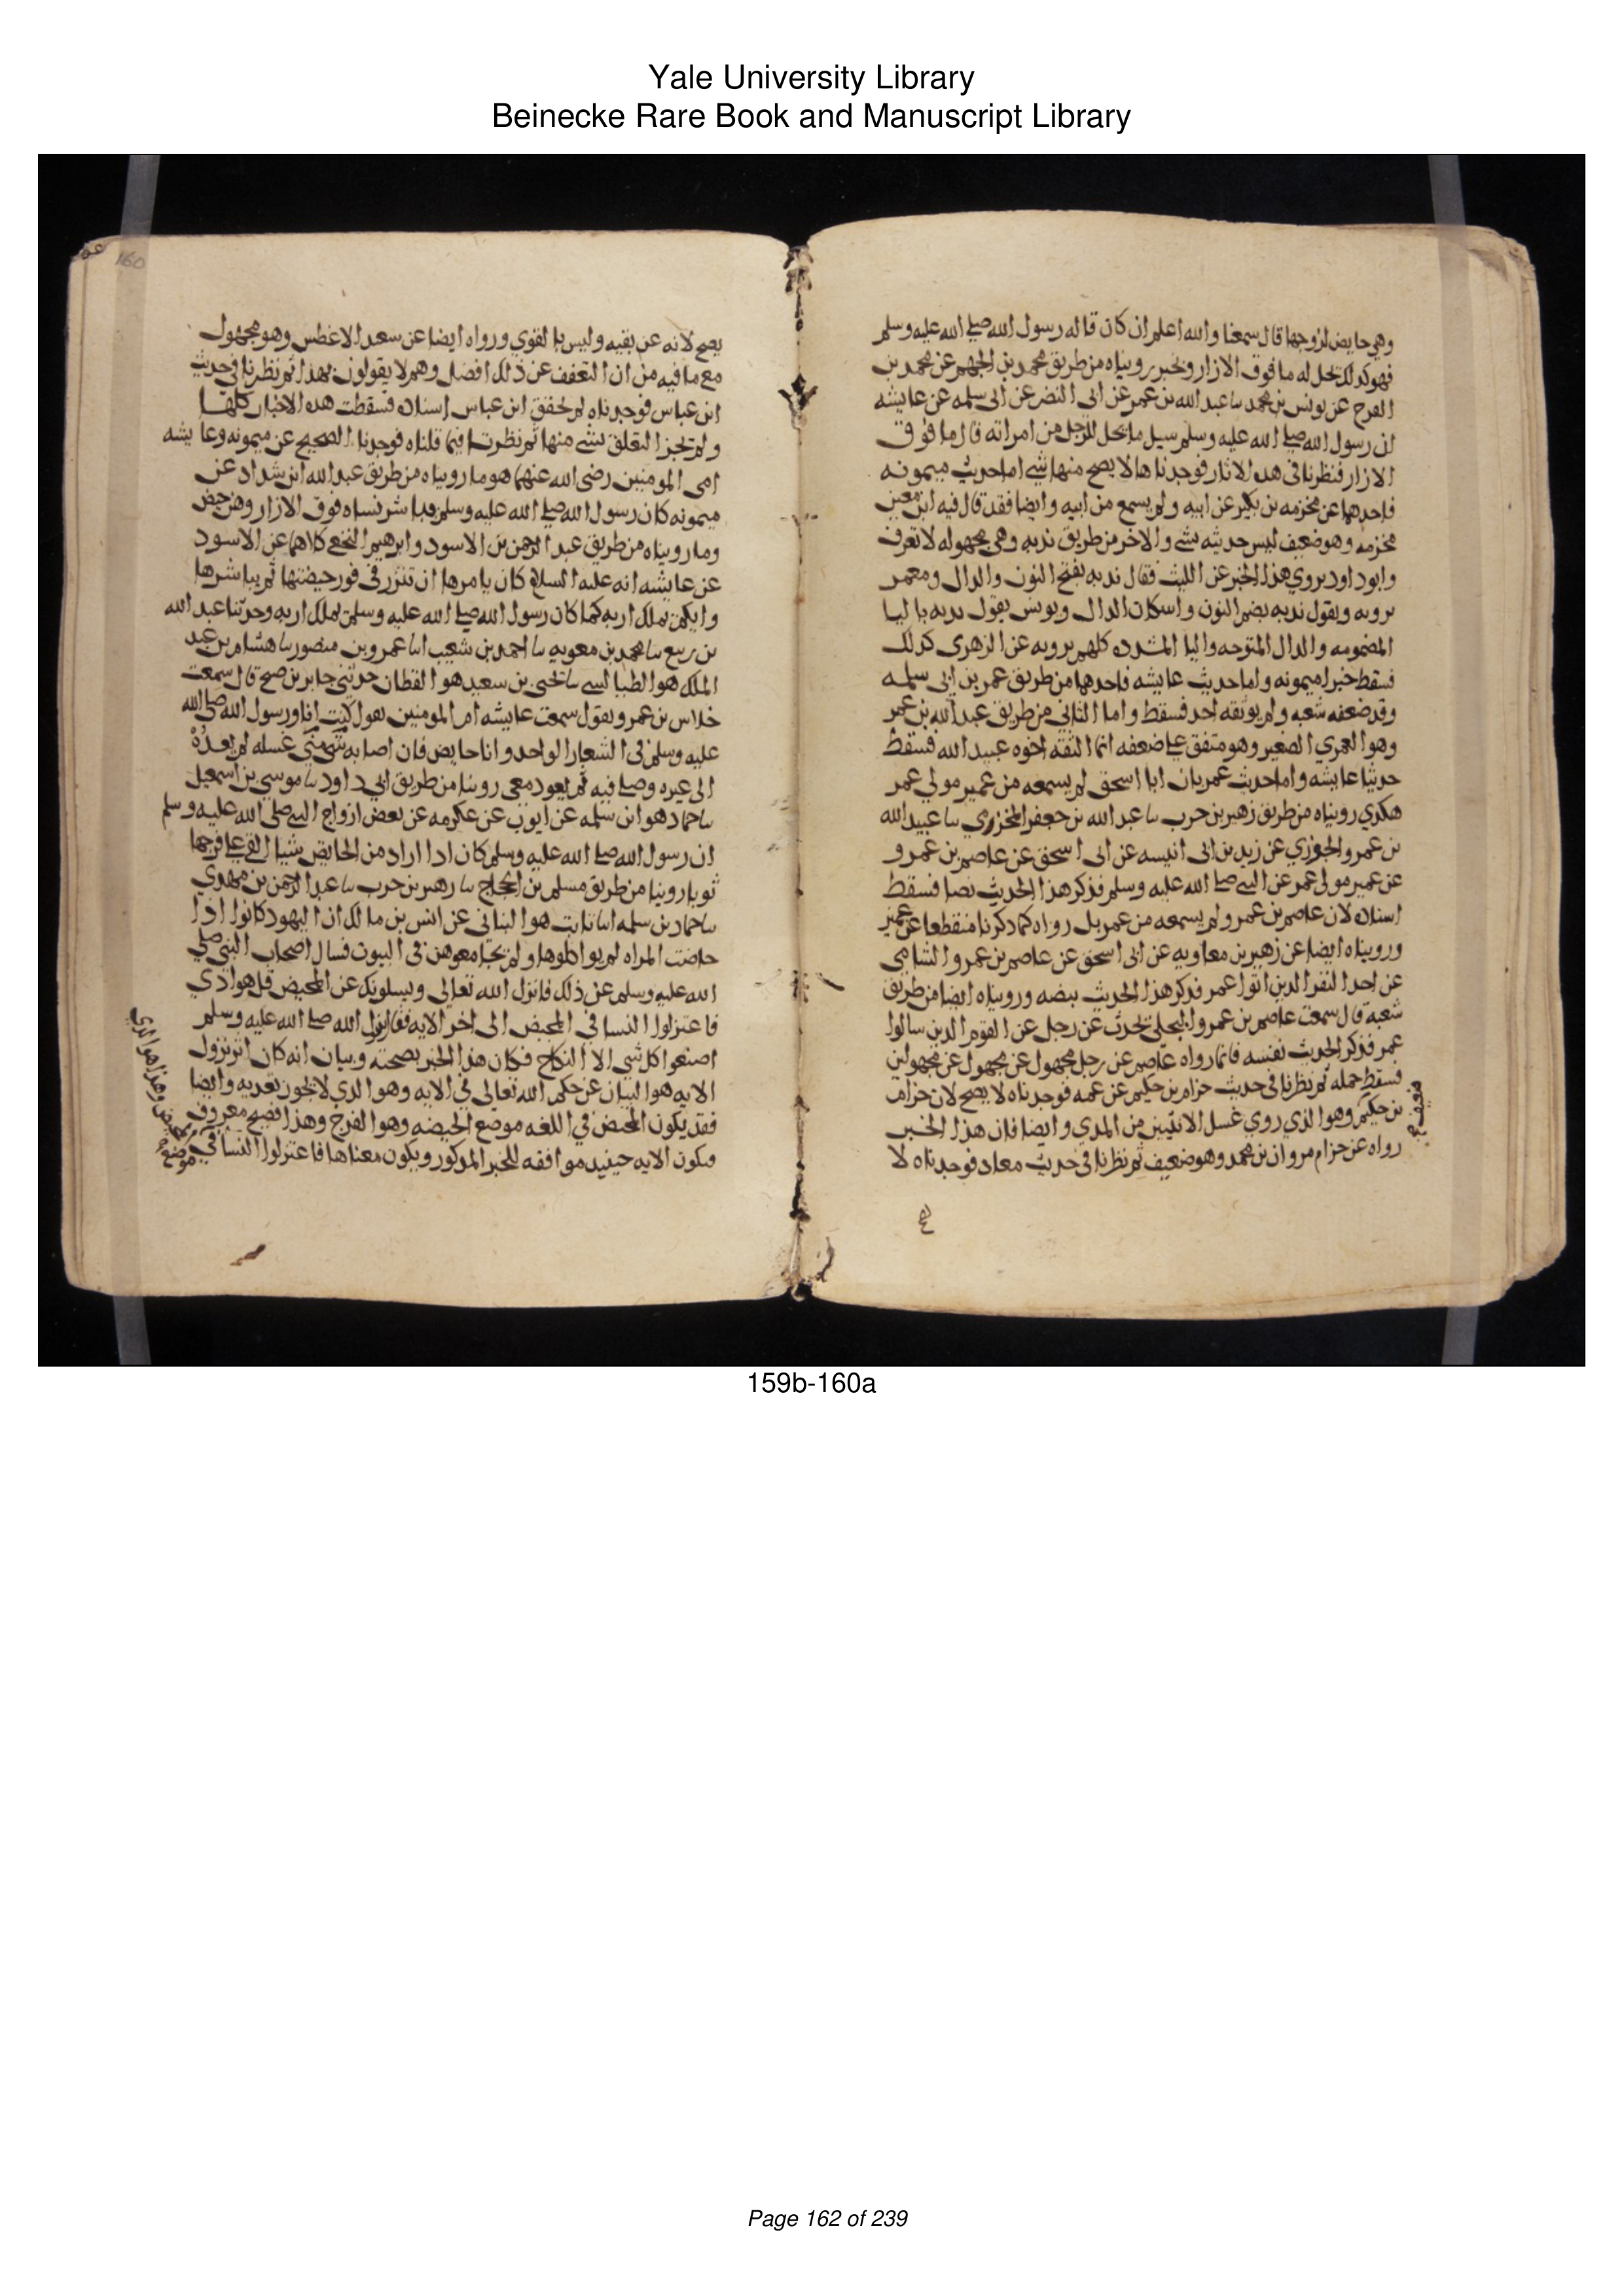 Yale University Library
Beinecke Rare Book and Manuscript Library
وهي حايض لزوجها قال سمعنا والله اعلم ان كان قاله رسول الله صلى الله عليه وسلم
فهو كذلك يحل له ما فوق الازار وبخبر رويناه من طريق محمد بن الجهم عن محمد بن
الفرج عن يونس بن محمد سا عبد الله بن عمر عن ابي النضر عن ابي سلمه عن عايشه
ان رسول الله صلى الله عليه وسلم سيل ما يحل للرجل من امراته قال ما فوق
الازار فنظرنا في هذه الاثار فوجدناها لا يصح منها شي اما حديث ميمونه
فاحدهما عن مخزمه بن بكير عن ابيه ولم يسمع من ابيه وايضا فقد قال فيه ابن معين
مخزمه وهو ضعيف ليس حديثه بشي والاخر من طريق ندبه وهي مجهوله لا تعرف
وابو داود يروي هذا الخبر عن الليث فقال ندبه بفتح النون والدال ومعمر
يرويه ويقول ندبه بضم النون واسكان الدال ويونس يقول بديه بالبا
المضمومه والدال المفتوحه واليا المشدده كلهم يرويه عن الزهرى كذلك
فسقط خبرا ميمونه واما حديث عايشه فاحدهما من طريق عمر بن ابي سلمه
وقد ضعفه شعبه ولم يوثقه احد فسقط واما الثاني من طريق عبد الله بن عمر
وهو العمري الصغير وهو متفق على ضعفه انما الثقه اخوه عبيد الله فسقط
حديثا عايشه واما حديث عمر بان ابا اسحق لم يسمعه من عمير مولي عمر
هكذي رويناه من طريق زهير بن حرب سا عبد الله بن جعفر المخزري سا عبيد الله
بن عمرو الجوزي عن زيد بن ابى انيسه عن ابى اسحق عن عاصم بن عمرو
عن عمير مولى عمر عن النبي صلى الله عليه وسلم فذكر هذا الحديث نصا فسقط
اسناده لان عاصم بن عمرو لم يسمعه من عمر بل رواه كما ذكرنا منقطعا عن عمير
ورويناه ايضا عن زهير بن معاويه عن ابى اسحق عن عاصم بن عمرو الشامى
عن احد النفر الذين اتوا عمر فذكر هذا الحديث بنصه ورويناه ايضا من طريق
شعبه قال سمعت عاصم بن عمرو البجلي يحدث عن رجل عن القوم الذين سالوا
عمر فذكر الحديث نفسه فانما رواه عاصم عن رجل مجهول عن مجهول عن مجهولين
فسقط جمله ثم نظرنا في حديث حزام بن حكيم عن عمه فوجدناه لا يصح لان حزام
ضعيف
بن حكيم وهو الذي روي غسل الانثيين من المدي وايضا فان هذا الخبر
رواه عن حزام مروان بن محمد وهو ضعيف ثم نظرنا في حديث معاد فوجدناه لا
160
يصح لانه عن بقيه وليس بالقوي ورواه ايضا عن سعد الاغطس وهو مجهول
مع ما فيه من ان التعفف عن ذلك افضل وهم لا يقولون بهدا ثم نظرنا في حديث
ابن عباس فوجدناه لم يحقق ابن عباس اسناده فسقطت هده الاخبار كلها
ولم يجز التعلق بشي منها ثم نظرنا فيما قلناه فوجدنا الصحيح عن ميمونه وعايشه
امى المومنين رضى الله عنهما هو ما رويناه من طريق عبد الله ابن شداد عن
ميمونه كان رسول الله صلى الله عليه وسلم يباشر نساه فوق الازار وهن حيض
وما رويناه من طريق عبد الرحمن بن الاسود وابرهيم النخعي كلاهما عن الاسود
عن عايشه انه عليه السلام كان يامرها ان تتزر في فور حيضتها ثم يباشرها
وايكم يملك اربه كما كان رسول الله صلى الله عليه وسلم يملك اربه وحدثنا عبد الله
بن ربيع سا محمد بن معويه سا احمد بن شعيب اسا عمرو بن منصور سا هشام بن عبد
الملك هو الطيالسي سا يحيى بن سعيد هو القطان حدثني جابر بن صبح قال سمعت
خلاس بن عمرو يقول سمعت عايشه ام المومنين تقول كنت انا ورسول الله صلى الله
عليه وسلم في الشعار الواحد وانا حايض فان اصابه شي مني غسله لم يعده
الى غيره وصلى فيه ثم يعود معي روينا من طريق ابي داود سا موسى بن اسمعيل
سا حماد هو ابن سلمه عن ايوب عن عكرمه عن بعض ازواج النبي صلى الله عليه وسلم
ان رسول الله صلى الله عليه وسلم كان ادا اراد من الحايض شيا القى على فرجها
ثوبا روينا من طريق مسلم بن الحجاج سا زهير بن حرب سا عبد الرحمن بن مهدي
سا حماد بن سلمه اسا ثابت هو البناني عن انس بن مالك ان اليهود كانوا ادا
حاضت المراه لم يواكلوها ولم يجامعوهن في البيوت فسال اصحاب النبي صلى
الله عليه وسلم عن ذلك فانزل الله تعالى ويسلونك عن المحيض قل هو اذي
فاعتزلوا النسا في المحيض الى اخر الايه فقال رسول الله صلى الله عليه وسلم
اصنعوا كل شي الا النكاح فكان هذا الخبر بصحته وبيان انه كان اثر نزول
الايه هو البيان عن حكم الله تعالى في الايه وهو الذي لا يجوز تعديه وايضا
فقد يكون المحيض في اللغه موضع الحيضه وهو الفرج وهذا فصيح معروف
فتكون الايه حينيد موافقه للخبر المدكور ويكون معناها فاعتزلوا النسا في
موضع
159b-160a
Page 162 of 239